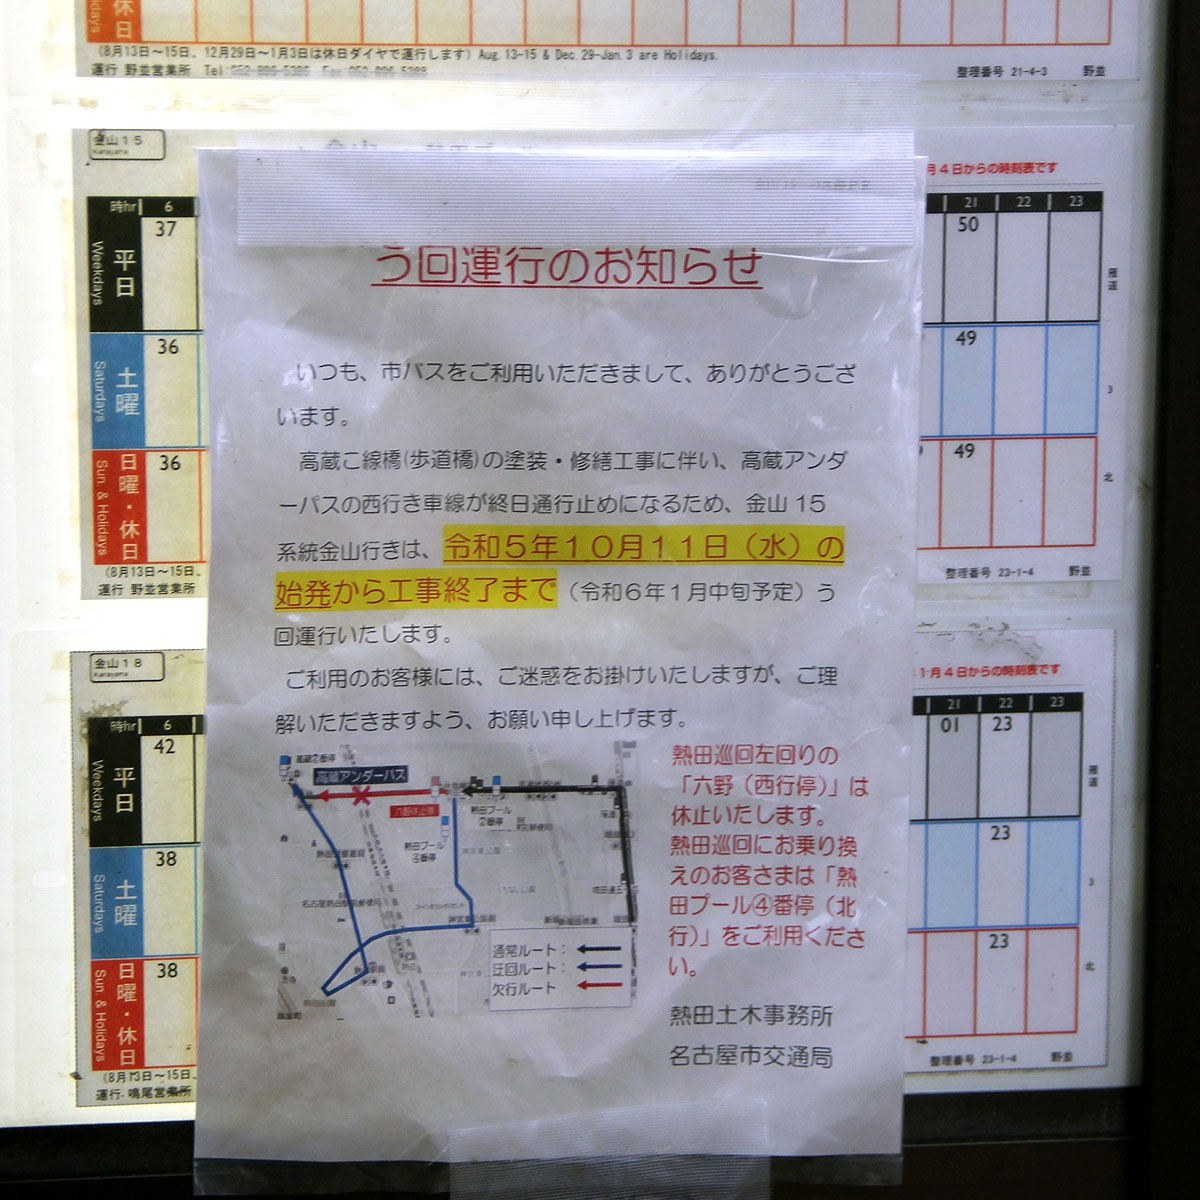 休日
(8月13日～15日、12月29日～1月3日は休日ダイヤで運行します) Aug.13-15 & Dec.29-Jan.3 are Holidays.
運行 野並営業所
整理番号 21-4-3 野並
金山15
Kanayama
月4日からの時刻表です
時hr 6
21 22 23
平日
Weekdays
37
50
土曜
Saturdays
36
49
日曜・休日
Sun. & Holidays
36
49
雁道
3
北
(8月13日～15日、
運行 野並営業所
整理番号 23-1-4 野並
う回運行のお知らせ
いつも、市バスをご利用いただきまして、ありがとうござ
います。
高蔵こ線橋(歩道橋)の塗装・修繕工事に伴い、高蔵アンダ
ーパスの西行き車線が終日通行止めになるため、金山 15
系統金山行きは、令和5年10月11日（水）の
始発から工事終了まで（令和6年1月中旬予定）う
回運行いたします。
ご利用のお客様には、ご迷惑をお掛けいたしますが、ご理
解いただきますよう、お願い申し上げます。
高蔵②番停
高蔵アンダーパス
六野休止停
熱田プール
②番停
熱田プール
④番停
通常ルート：
迂回ルート：
欠行ルート
熱田巡回左回りの
「六野（西行停）」は
休止いたします。
熱田巡回にお乗り換
えのお客さまは「熱
田プール④番停（北
行）」をご利用くださ
い。
熱田土木事務所
名古屋市交通局
金山18
Kanayama
1月4日からの時刻表です
時hr 6
21 22 23
平日
Weekdays
42
01 23
土曜
Saturdays
38
23
日曜・休日
Sun. & Holidays
38
23
雁道
3
北
(8月13日～15日、
運行 鳴尾営業所
整理番号 23-1-4 野並